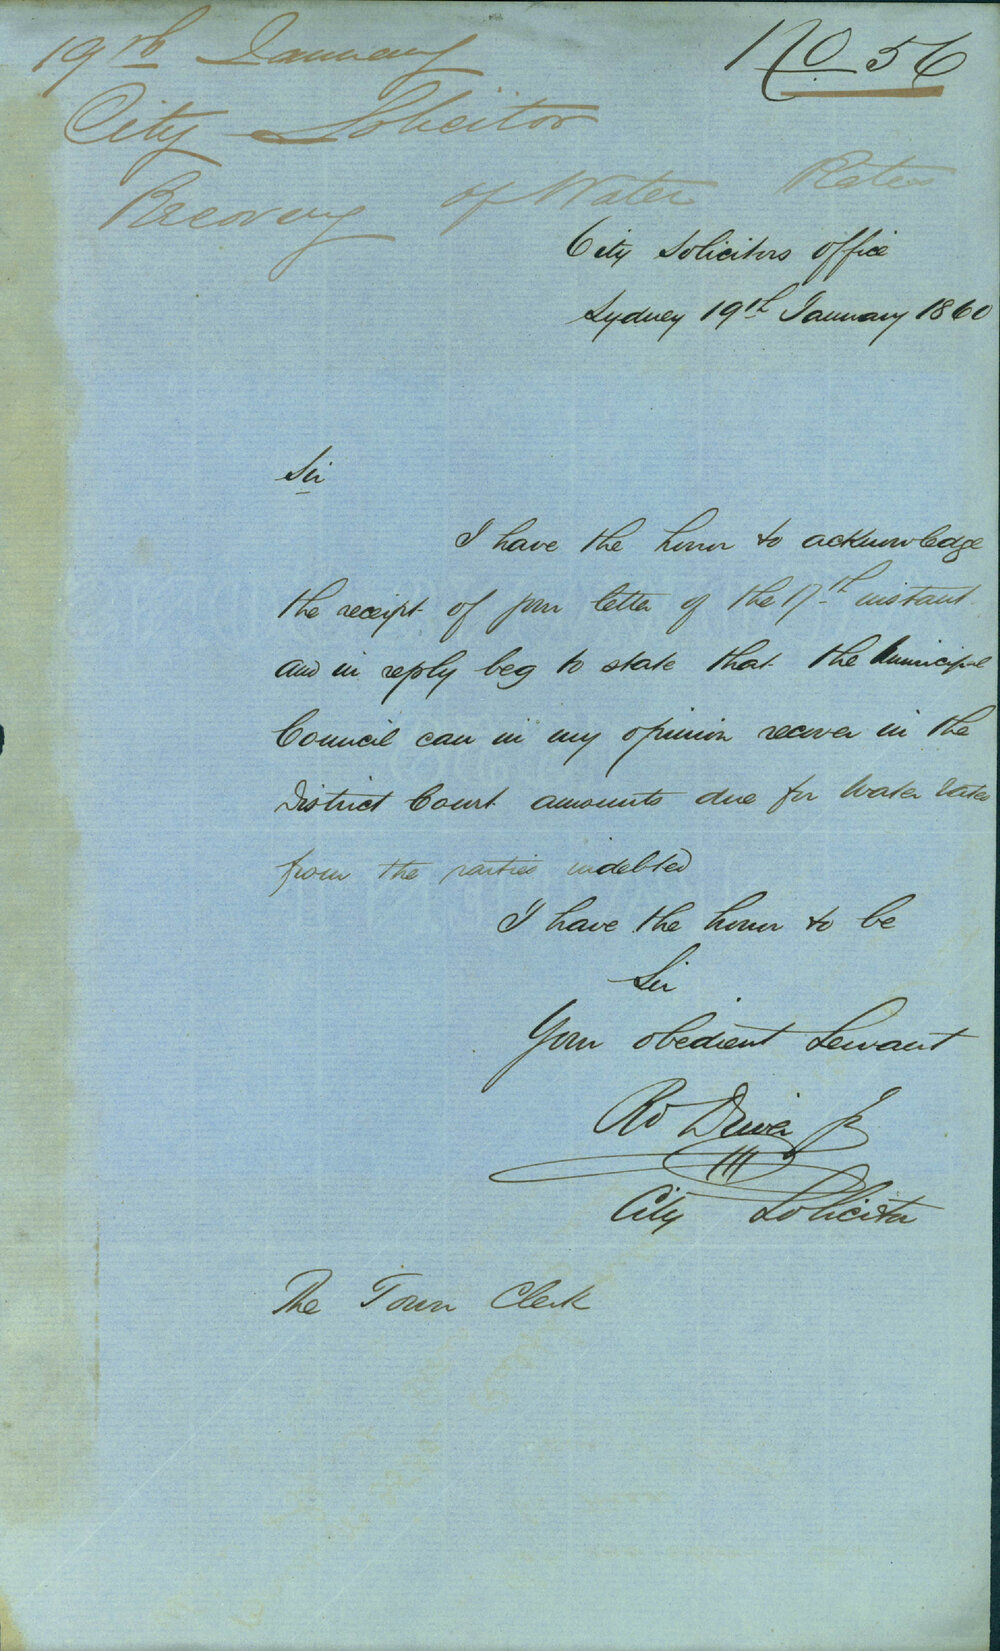 19th January
No 56
City Solicitor
Recovery of Water Rates
City Solicitors Office
Sydney 19th January 1860
Sir
I have the honor to acknowledge
the receipt of your letter of the 17th instant
and in reply beg to state that the Municipal
Council can in my opinion recover in the
District Court amounts due for Water rates
from the parties indebted
I have the honor to be
Sir
Your obedient Servant
Rd Driver Jr
City Solicitor
The Town Clerk